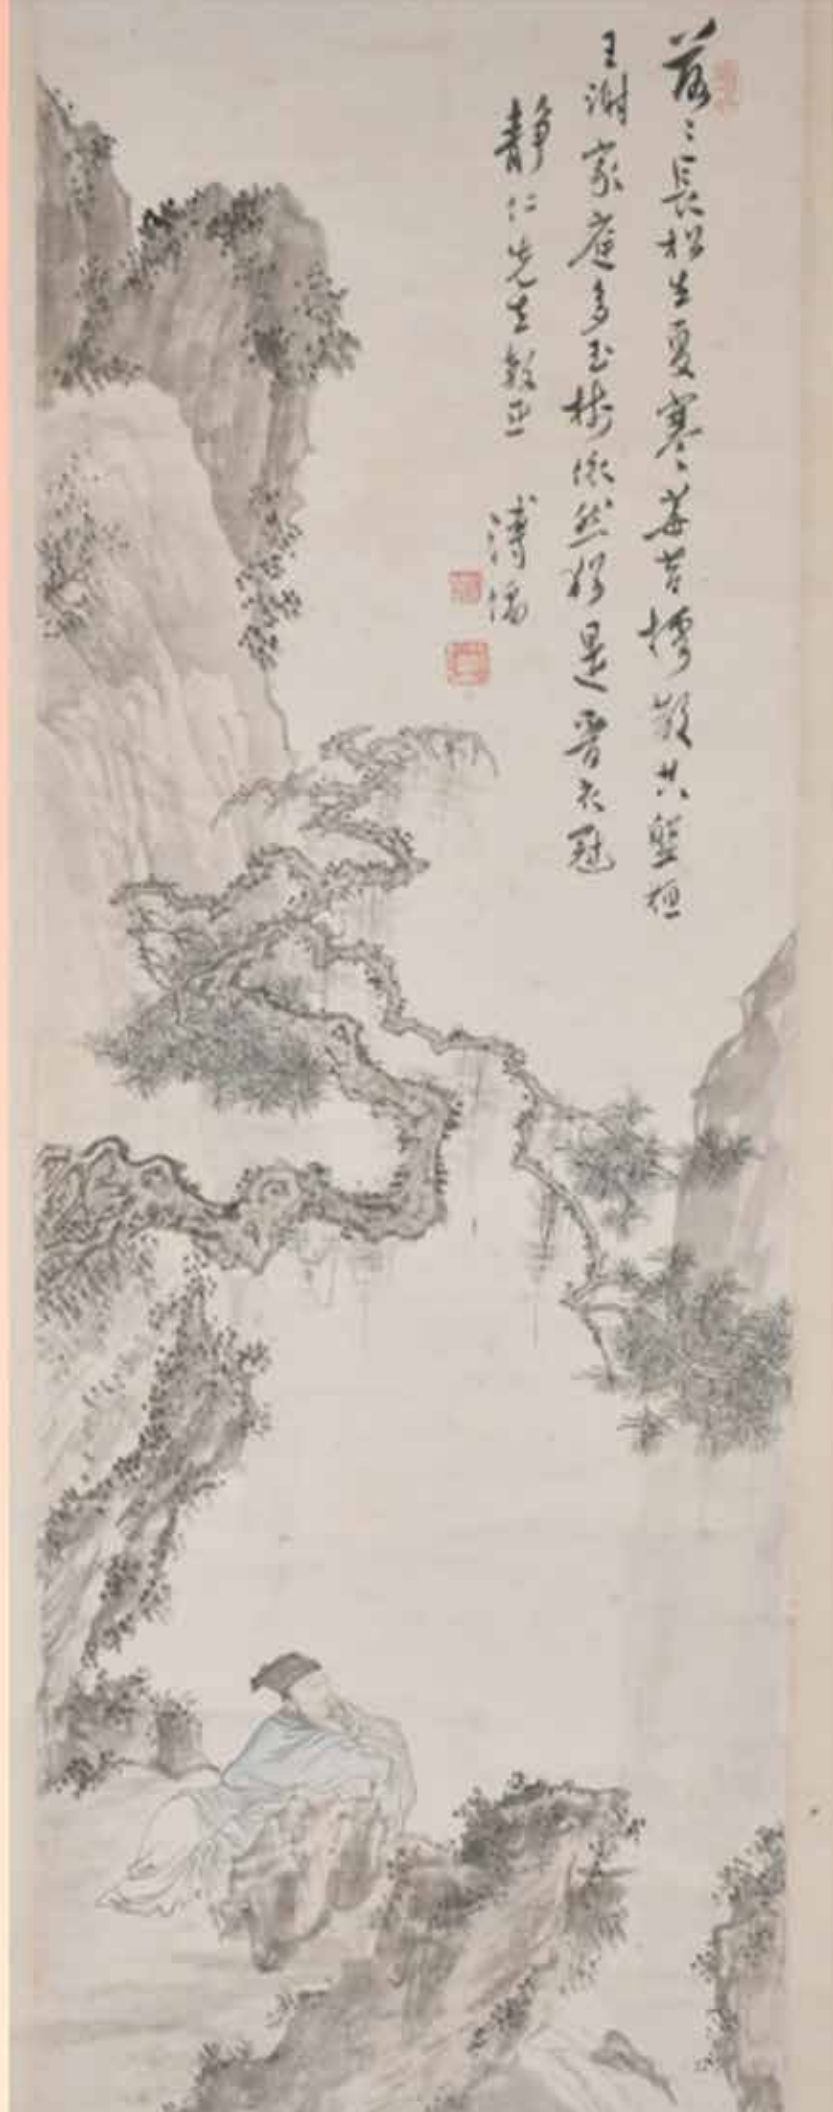 落〻長松生夏寒莓苔共盤桓
王謝家庭多玉樹依然猶是晉衣冠
靜仁先生教正 溥儒